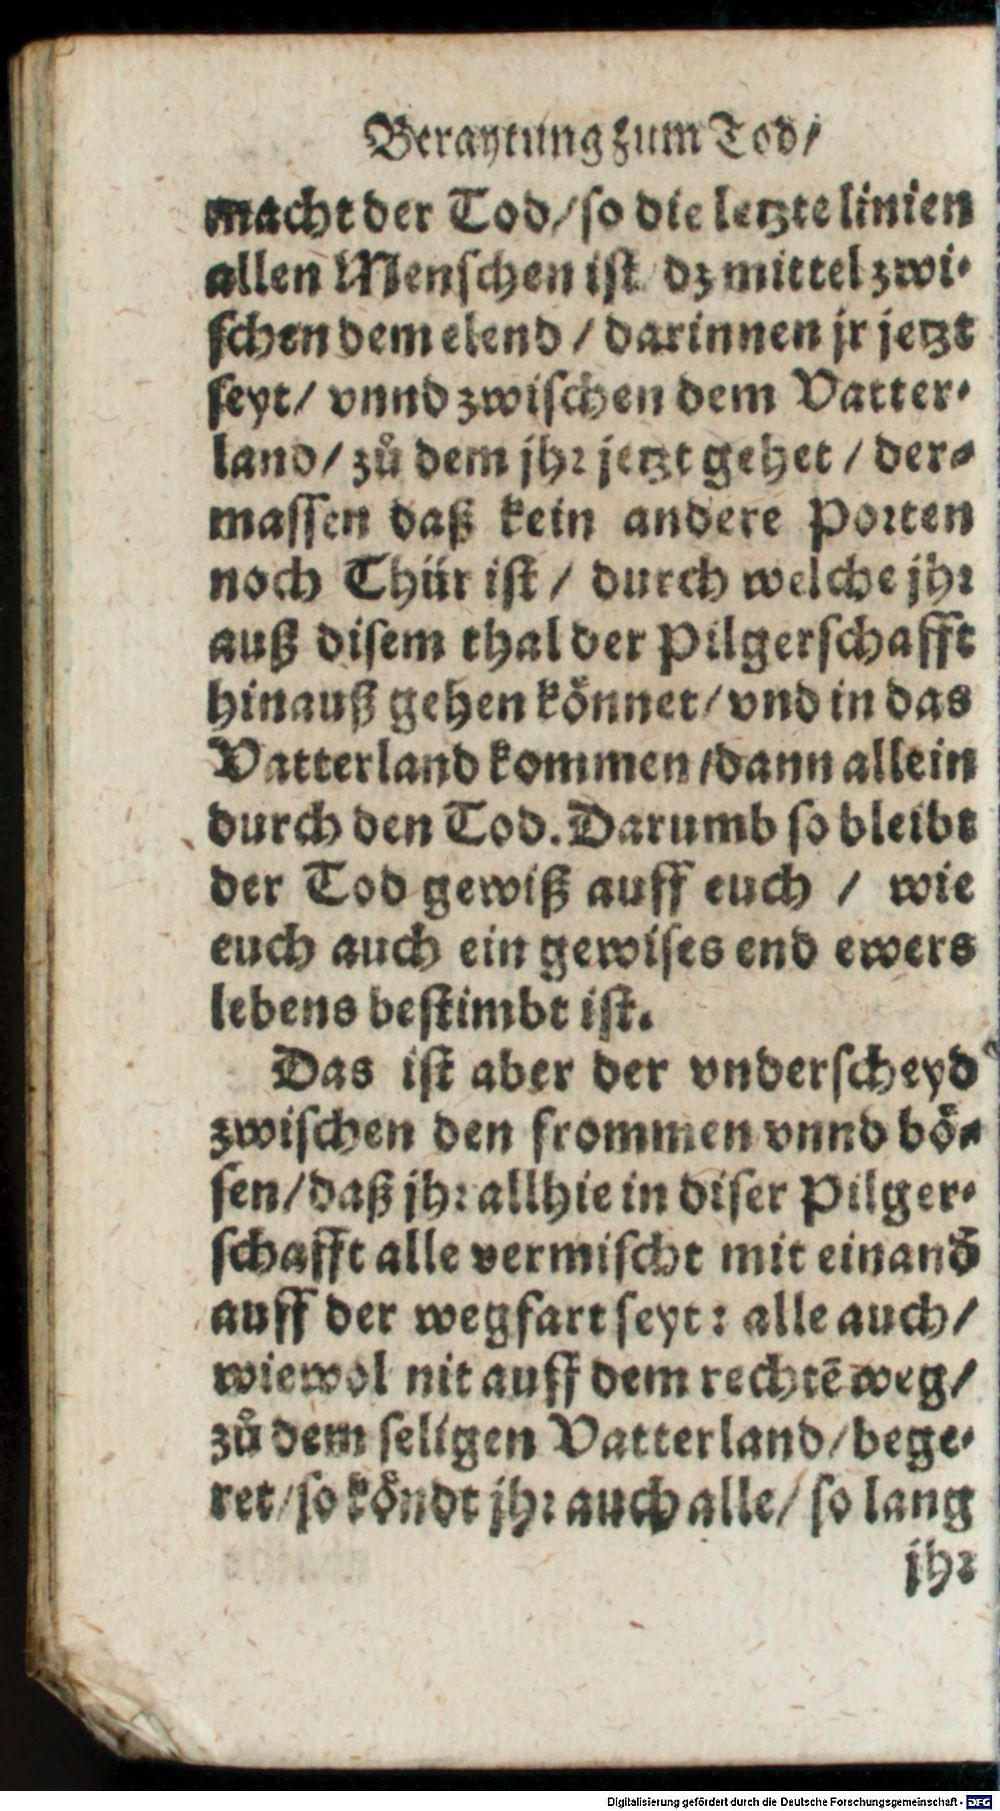 Beraytung zum Tod/
macht der Tod/ so die letzte linien
allen Menschen ist dz mittel zwi-
schen dem elend / darinnen jr jetzt
seyt/ vnnd zwischen dem Vatter-
land/ zů dem jhr jetzt gehet / der-
massen daß kein andere Porten
noch Thür ist / durch welche jhr
auß disem thal der Pilgerschafft
hinauß gehen koͤnnet/ vnd in das
Vatterland kommen / dann allein
durch den Tod. Darumb so bleibt
der Tod gewiß auff euch / wie
euch auch ein gewises end ewers
lebens bestimbt ist.
Das ist aber der vnderscheyd
zwischen den frommen vnnd boͤ-
sen/ daß jhr allhie in diser Pilger-
schafft alle vermischt mit einand̄
auff der wegfart seyt: alle auch/
wiewol nit auff dem rechtē weg/
zů dem seligen Vatterland/ bege-
ret/ so koͤndt jhr auch alle/ so lang
jhr
Digitalisierung gefördert durch die Deutsche Forschungsgemeinschaft - DFG